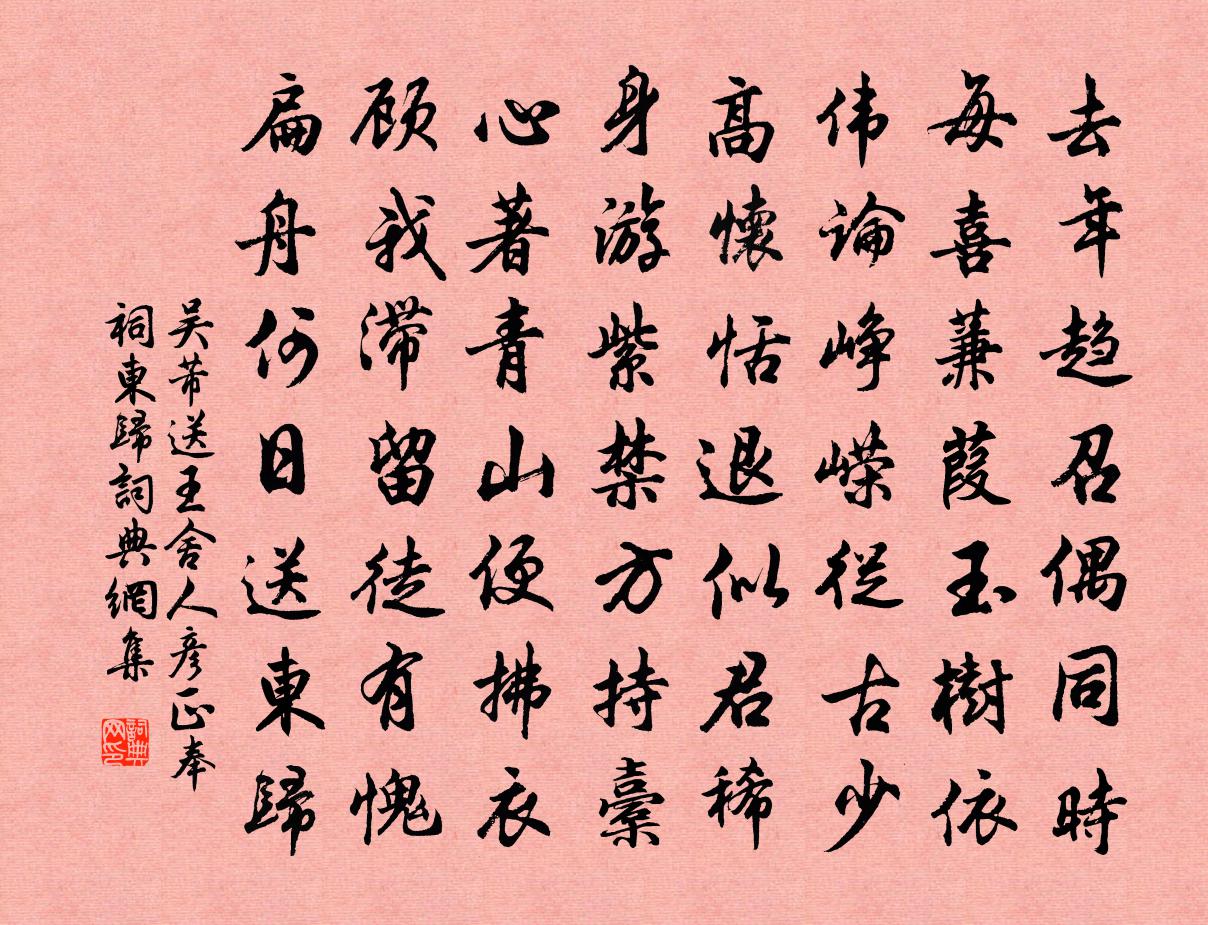 去年趋召偶同時
每喜蒹葭玉樹依
伟論峥嵘從古少
高懷恬退似君稀
身游紫禁方持橐
心著青山便拂衣
顾我滞留徒有愧
扁舟何日送東歸
吴芾送王舍人彦正奉
祠東歸詞典網集
詞典网印